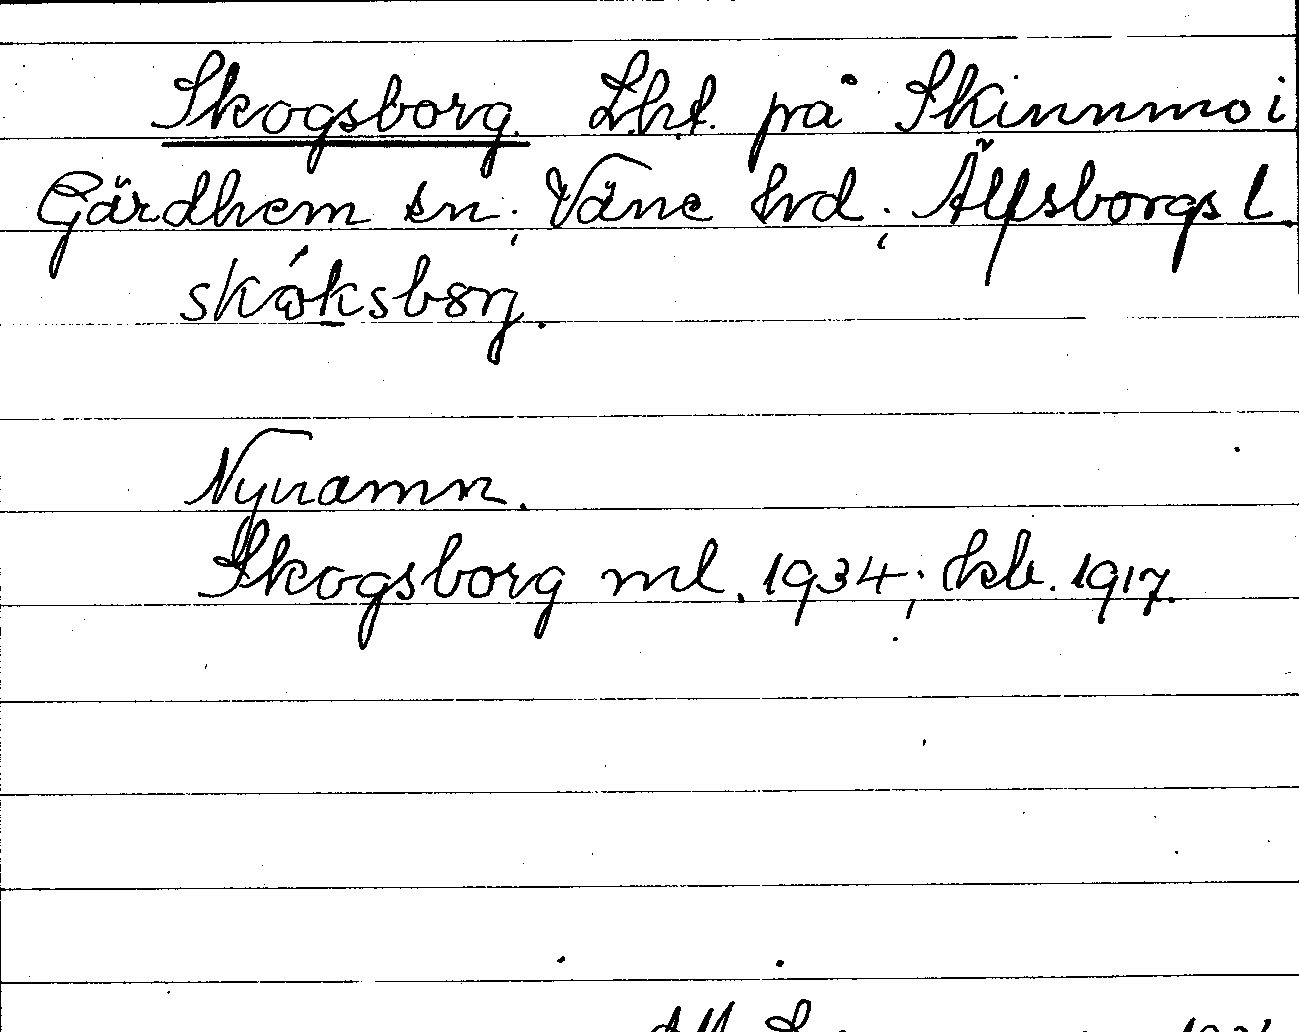 Skogsborg. Lht. på Skinnmo i
Gärdhem sn; Väne hrd; Älfsborgs l.
skóksbôrg.
Nynamn.
Skogsborg ml. 1934; kb. 1917.